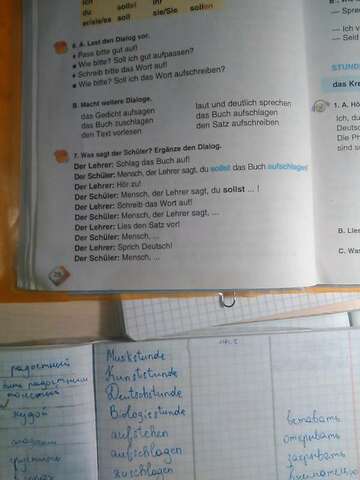 ich
du sollst ihr
er/sie/es soll sie/Sie sollen
6. A. Lest den Dialog vor.
• Pass bitte gut auf!
• Wie bitte? Soll ich gut aufpassen?
• Schreib bitte das Wort auf!
• Wie bitte? Soll ich das Wort aufschreiben?
B. Macht weitere Dialoge.
das Gedicht aufsagen
das Buch zuschlagen
den Text vorlesen
laut und deutlich sprechen
das Buch aufschlagen
den Satz aufschreiben
7. Was sagt der Schüler? Ergänze den Dialog.
Der Lehrer: Schlag das Buch auf!
Der Schüler: Mensch, der Lehrer sagt, du sollst das Buch aufschlagen!
Der Lehrer: Hör zu!
Der Schüler: Mensch, der Lehrer sagt, du sollst ... !
Der Lehrer: Schreib das Wort auf!
Der Schüler: Mensch, der Lehrer sagt, ...
Der Lehrer: Lies den Satz vor!
Der Schüler: Mensch, ...
Der Lehrer: Sprich Deutsch!
Der Schüler: Mensch, ...
— Spre
— Ich v
— Seid
STUND
das Kre
1. A. Hö
Ich, du
Deutsc
Die Ph
sind s
B. Lies
C. Was
радостный
толстый
худой
Musikstunde
Kunststunde
Deutschstunde
Biologiestunde
aufstehen
aufschlagen
zuschlagen
вставать
открывать
закрывать